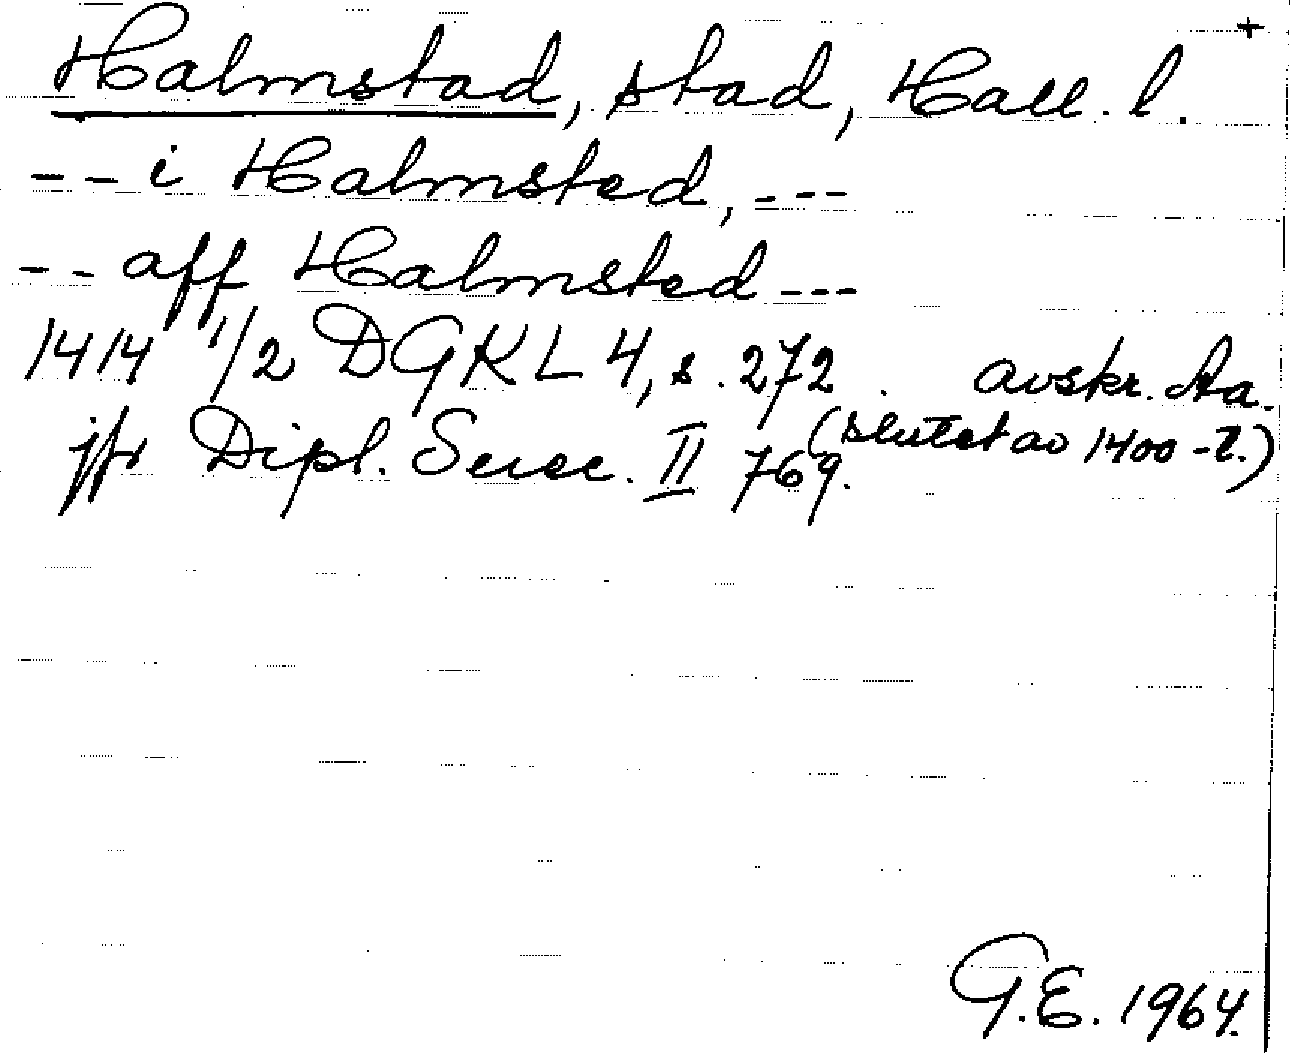 +
Halmstad, stad, Hall. l.
-- i Halmsted, ---
-- aff Halmsted ---
1414 1/2 DGKL 4, s. 272 avskr. Aa.
(slutet av 1400-t.)
jfr Dipl. Suec. II 769.
G.E. 1964.